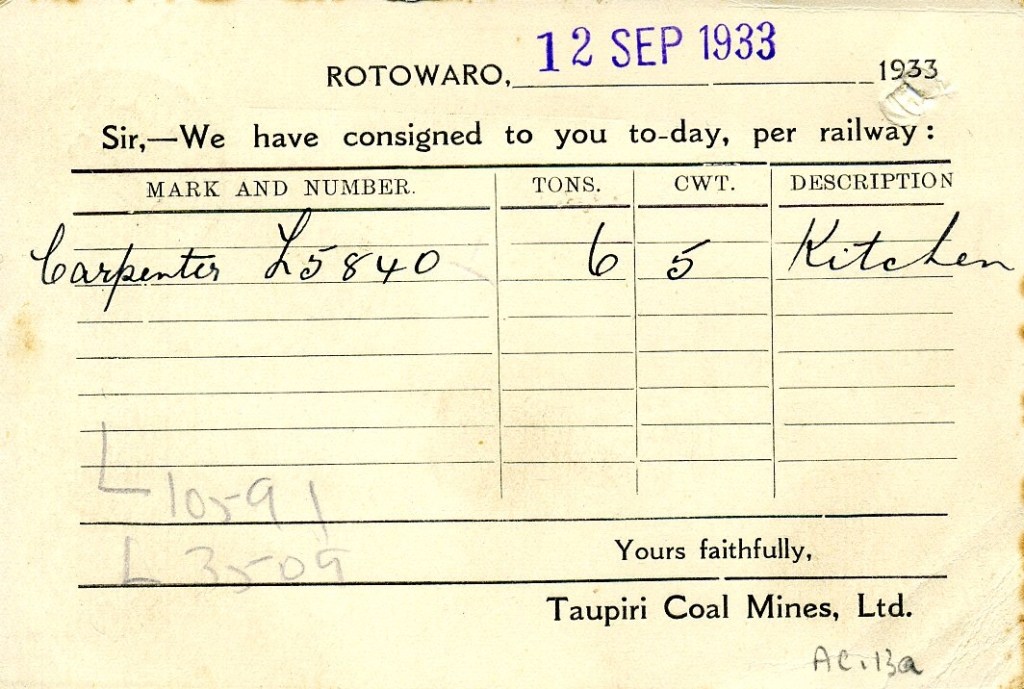 12 SEP 1933
ROTOWARO, 1933
Sir,—We have consigned to you to-day, per railway:
MARK AND NUMBER. TONS. CWT. DESCRIPTION
Carpenter L5840 6 5 Kitchen
L 10591
L 3509
Yours faithfully,
Taupiri Coal Mines, Ltd.